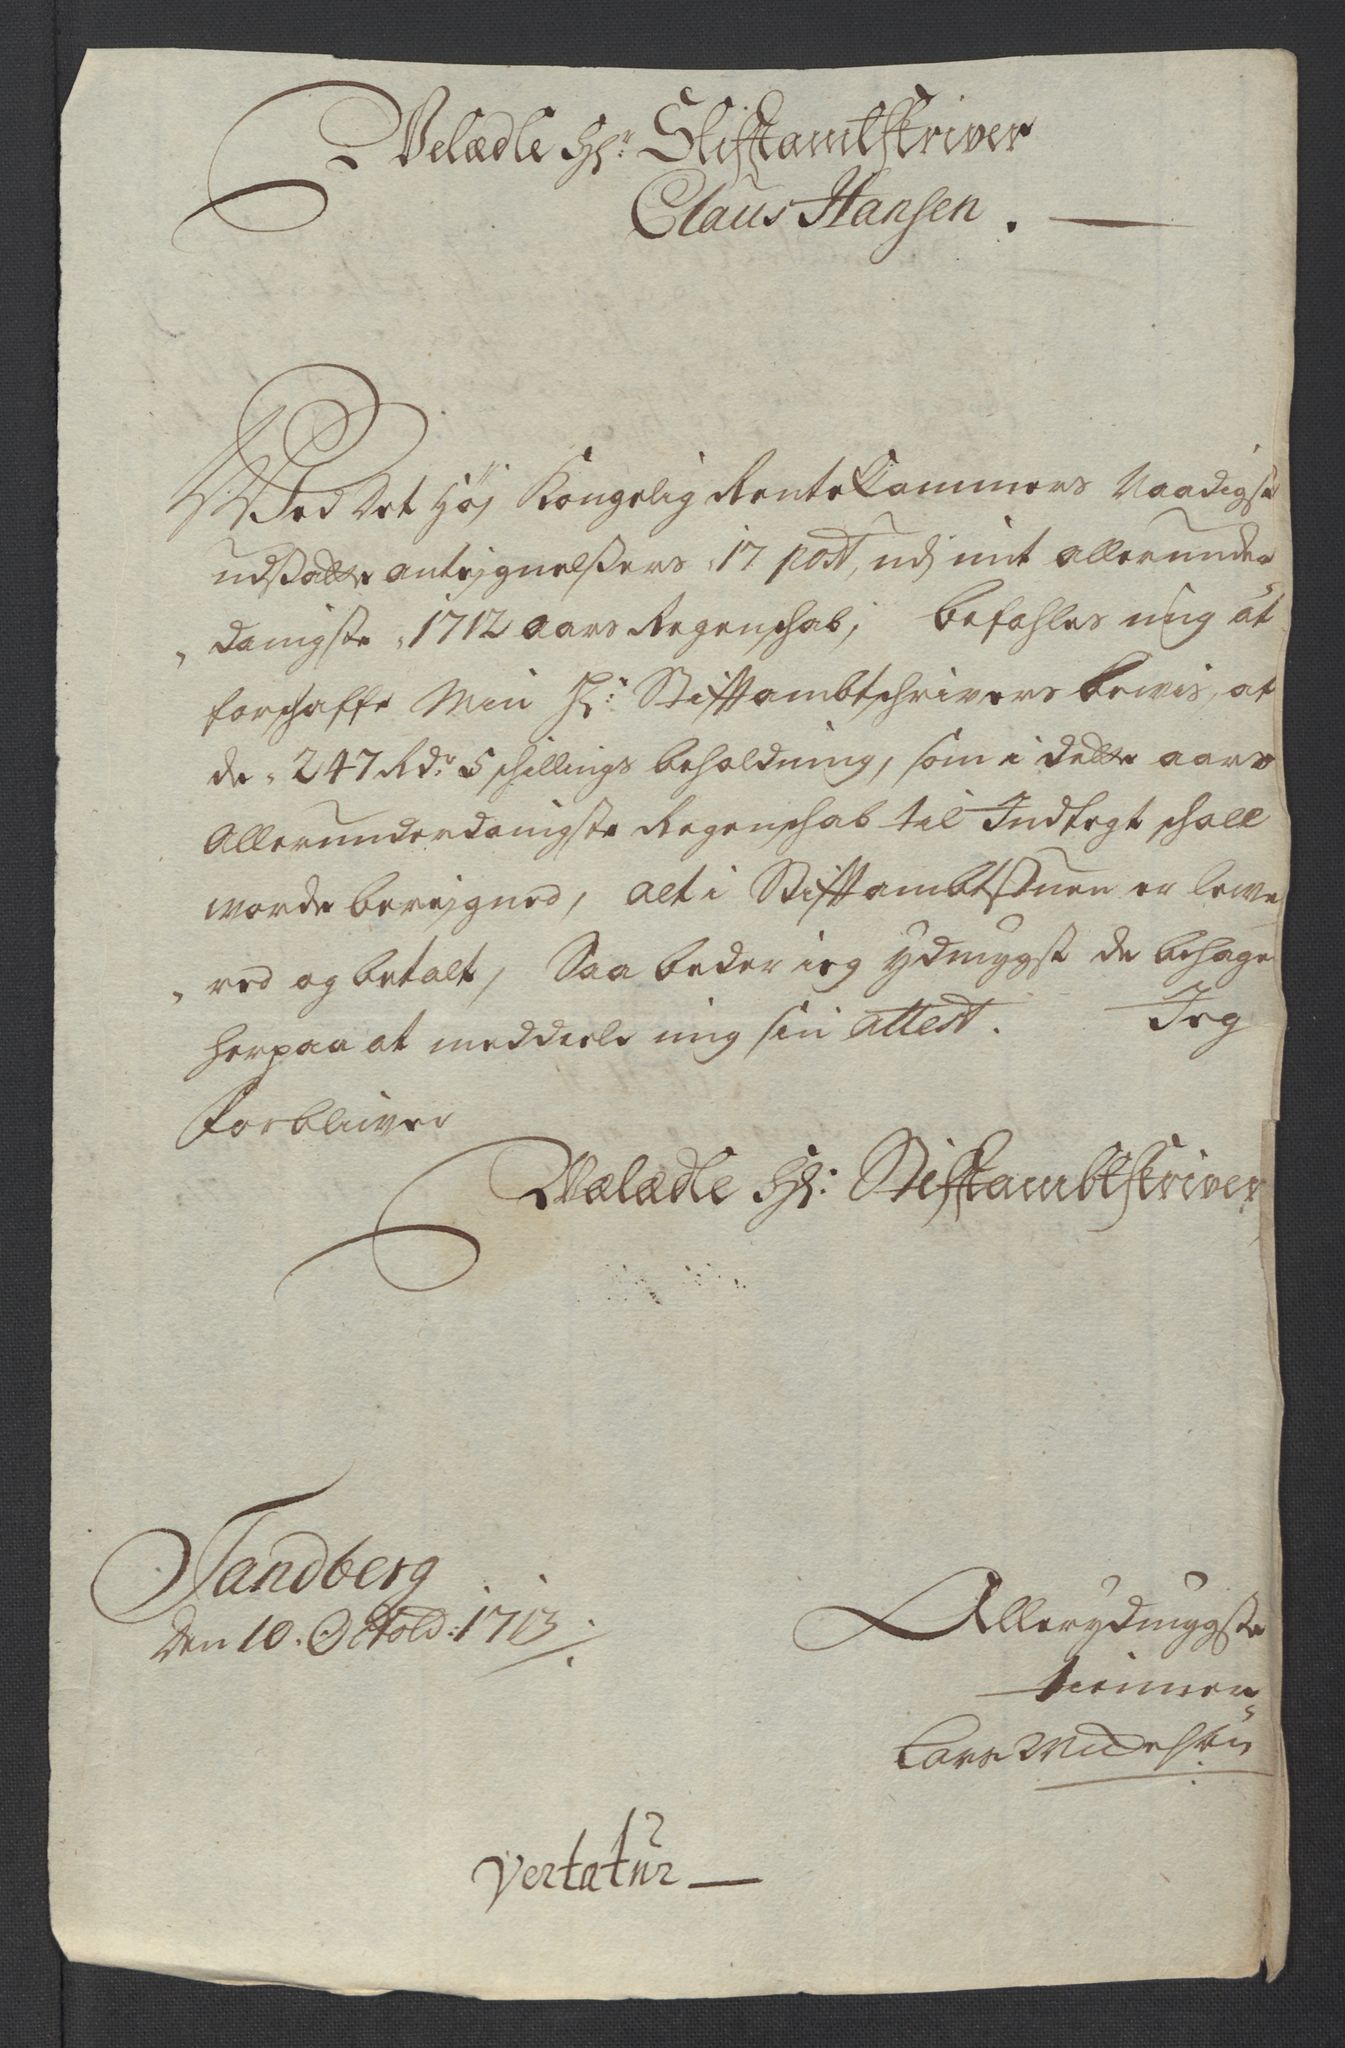 Velædle Hr: Stifftamtskriver
Claus Hansen.
Ved Det Høj Kongelig RenteCammers Naadigst
udstædte antejgnelssers 17 post, udj mit allerunder
danigste 1712 aars Regenschab, befahles mig at
forschaffe Min Hr: Stifftambtschrivers bewis, at
de 247 Rdr 5 schillings beholdning, som i dette aars
Allerunderdanigste Regenschab til Indtegt schall
worde berejgned, alt i Stifftambtstuen er lewe
red og betalt, Saa beder ieg ydmygst de behage
herpaa at meddiele mig sin attest. Jeg
Forbliver
Velædle Hr: Stifftambtskriver
Sandberg
den 10. Octobr: 1713
Allerydmygste
tienner
Lars
Vertatur